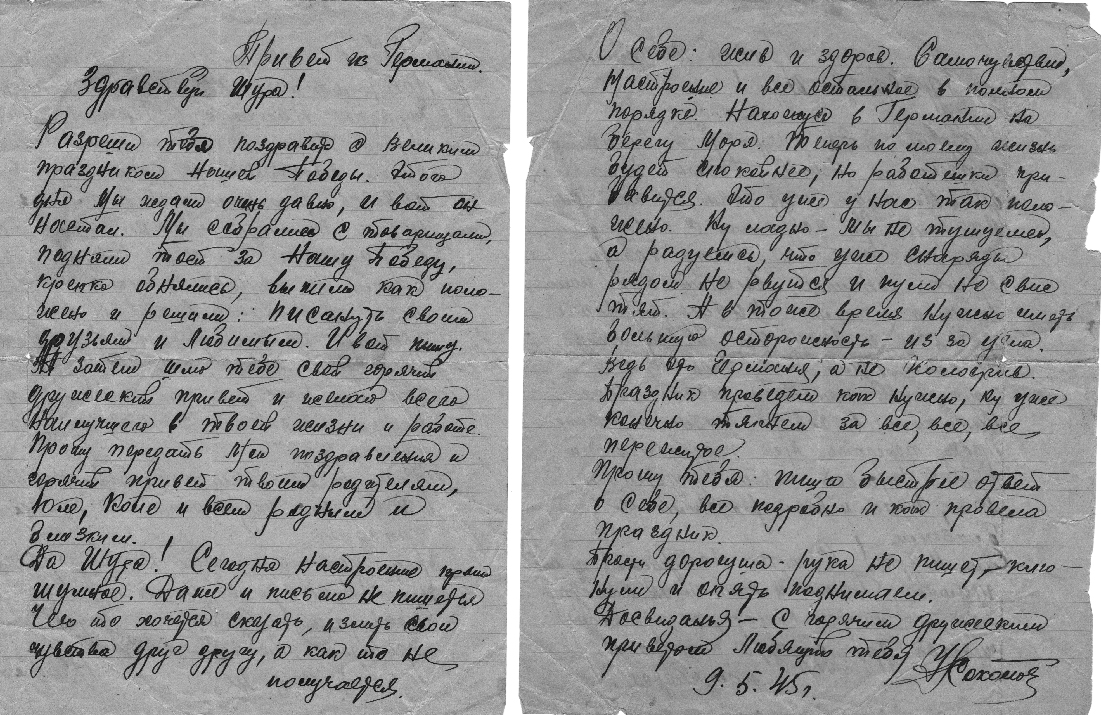 Привет из Германии.
Здравствуй Шура!
Разреши тебя поздравить с Великим
праздником Нашей Победы. Этого
дня мы ждали очень давно, и вот он
настал. Мы собрались с товарищами,
подняли тост за Нашу Победу,
крепко обнялись, выпили как поло-
жено и решили: писануть своим
друзьям и любимым. И вот пишу.
А затем шлю тебе свой горячий
дружеский привет и желаю всего
наилучшего в твоей жизни и работе.
Прошу передать мои поздравления и
горячий привет твоим родителям,
Юле, Коле и всем родным и
близким.
Да Шура! Сегодня настроение
шумное. Даже и письмо не пишется
Чего то хочется сказать, излить свои
чувства друг другу, а как то не
получается.
О себе: жив и здоров. Самочувствие,
настроение и все остальное в полном
порядке. Нахожусь в Германии на
берегу моря. Теперь по моему жизнь
будет спокойнее, но работёшки при-
бавится. Это уже у нас так поло-
жено. Ну ладно - мы не тужуемся,
а радуемся, что уже снаряды
рядом не рвутся и пули не свис
тят. А в тоже время нужно иметь
большую осторожность - из за угла.
Ведь это Германия, а не
Праздник проведем как нужно, ну уже
конечно тяпнем за все, все, все,
пережитое.
Прошу тебя: пиши быстрее ответ
о себе, все подробно и как провела
праздник.
Прости дорогуша - рука не пишет, - клю-
кнули и опять поднимаем.
Досвиданья - с горячим дружеским
приветом Любящий тебя
9.5.45г.